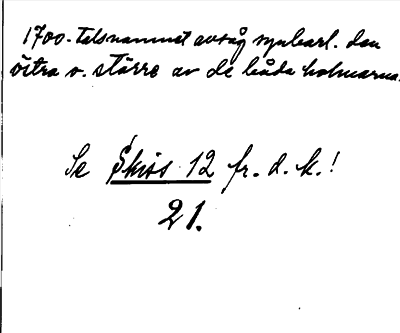 1700-talsnamnet avsåg synbarl. den
östra o. större av de båda holmarna.
Se Skiss 12 fr. d. k.!
21.